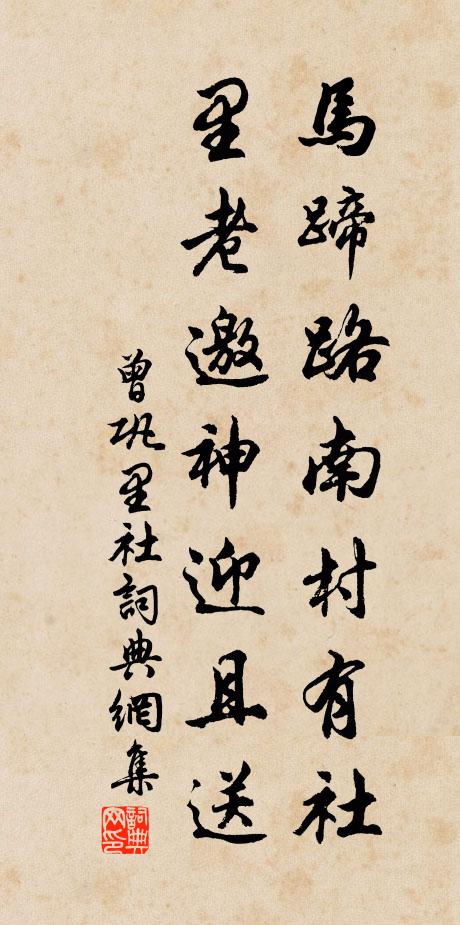 馬蹄路南村有社
里老邀神迎且送
曾巩里社詞典網集
詞典网印